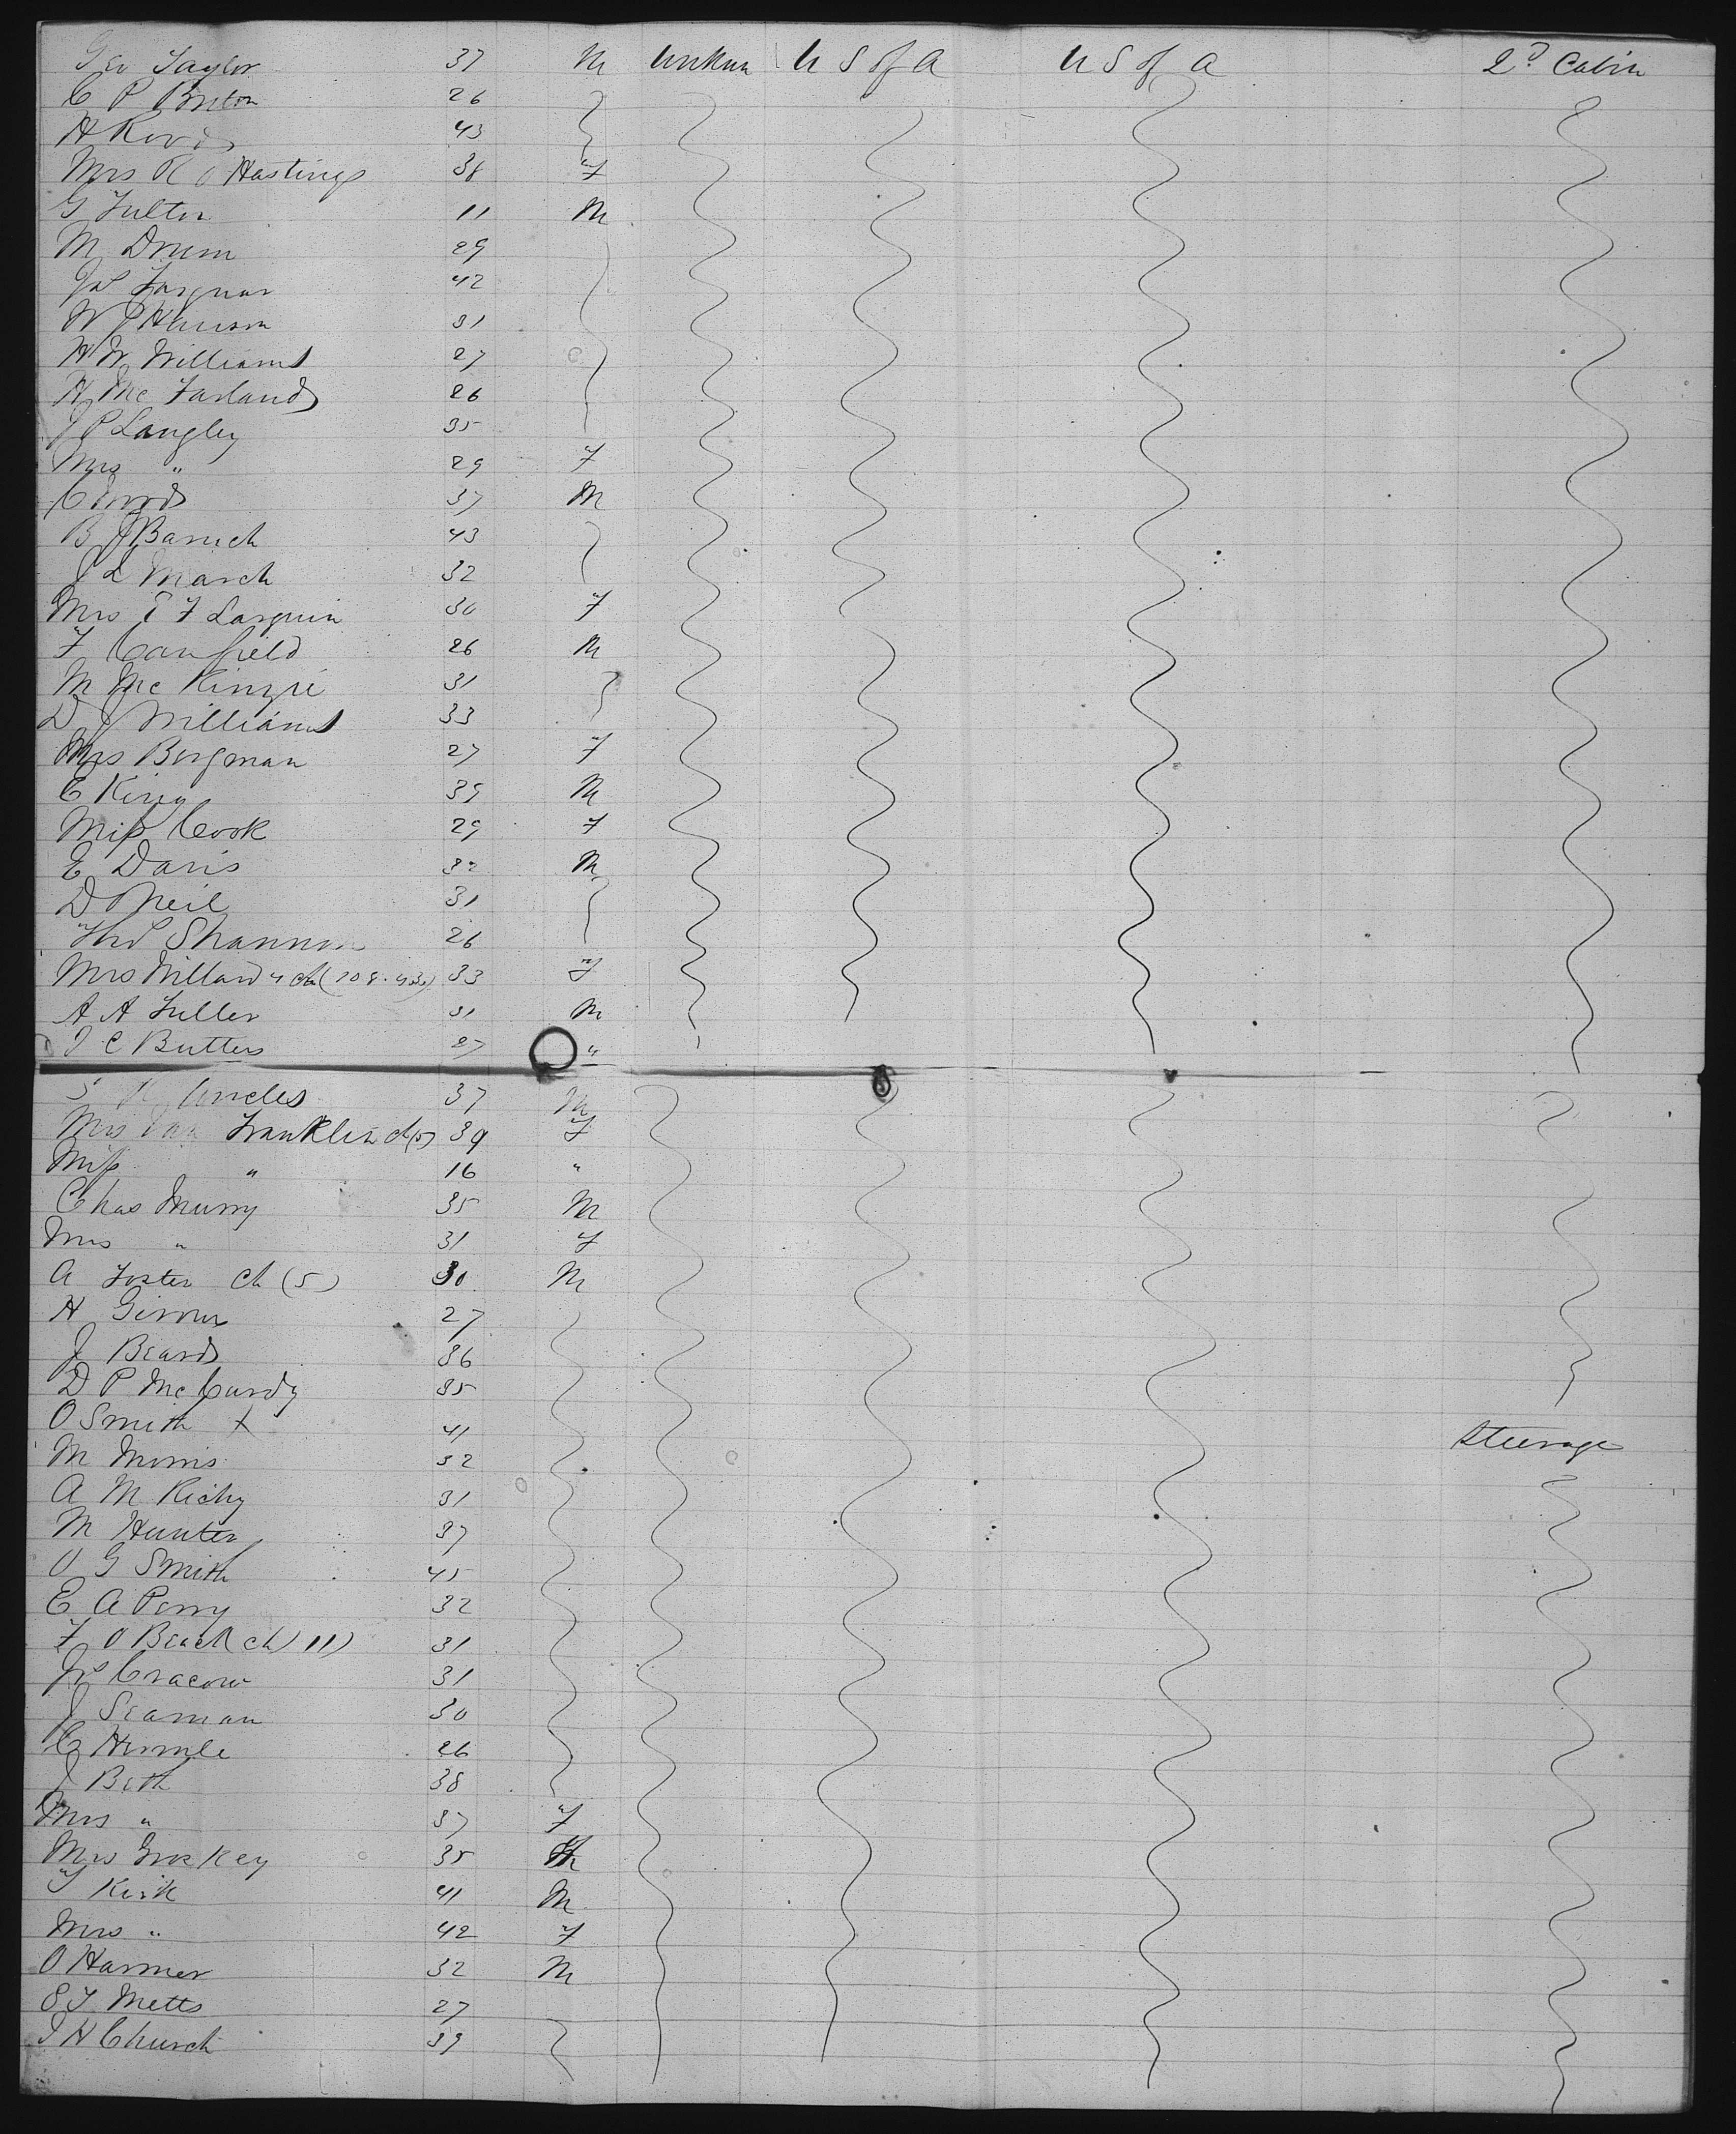 Geo Taylor 37 M Unknn U S of A U S of A 2d Cabin
C P Briton 26
H Rovds 43
Mrs R O Hastings 38 F
G Fulton 11 M
M Drum 29
Jas Farquar 42
W P Hanson 31
H W Williams 27
H Mc Farland 26
J P Langley 35
Mrs " 29 F
37 M
B J Baruch 43
J L March 32
Mrs E F Larquin 30 F
F Canfield 26 M
M Mc Kinzie 31
D J Williams 33
Mrs Bergman 27 F
C King 39 M
Miss Cook 29 F
E Davis 32 M
D ONeil 31
Thos Shannon 26
Mrs Willard 4 ch 33 F
A A Fuller 31 M
J C Butters 27 "
S R Uncles 37 M
Mrs Franklin ch (5) 39 F
Miss " 16 "
Chas Murry 35 M
Mrs " 31 F
A Foster ch (5) 30 M
H 27
J Beard 36
D P McCurdy 35
O Smith x 41 Steerage
M Morris 32
A M Richy 31
M Hunter 37
O G Smith 45
E A Perry 32
F O Beach (ch) 11) 31
Jos Cracow 31
J Seaman 30
C Himmle 26
J Beth 38
Mrs " 37 F
Mrs 35
T Kirk 41 M
Mrs " 42 F
O Harmer 32 M
S T Metts 27
J H Church 39